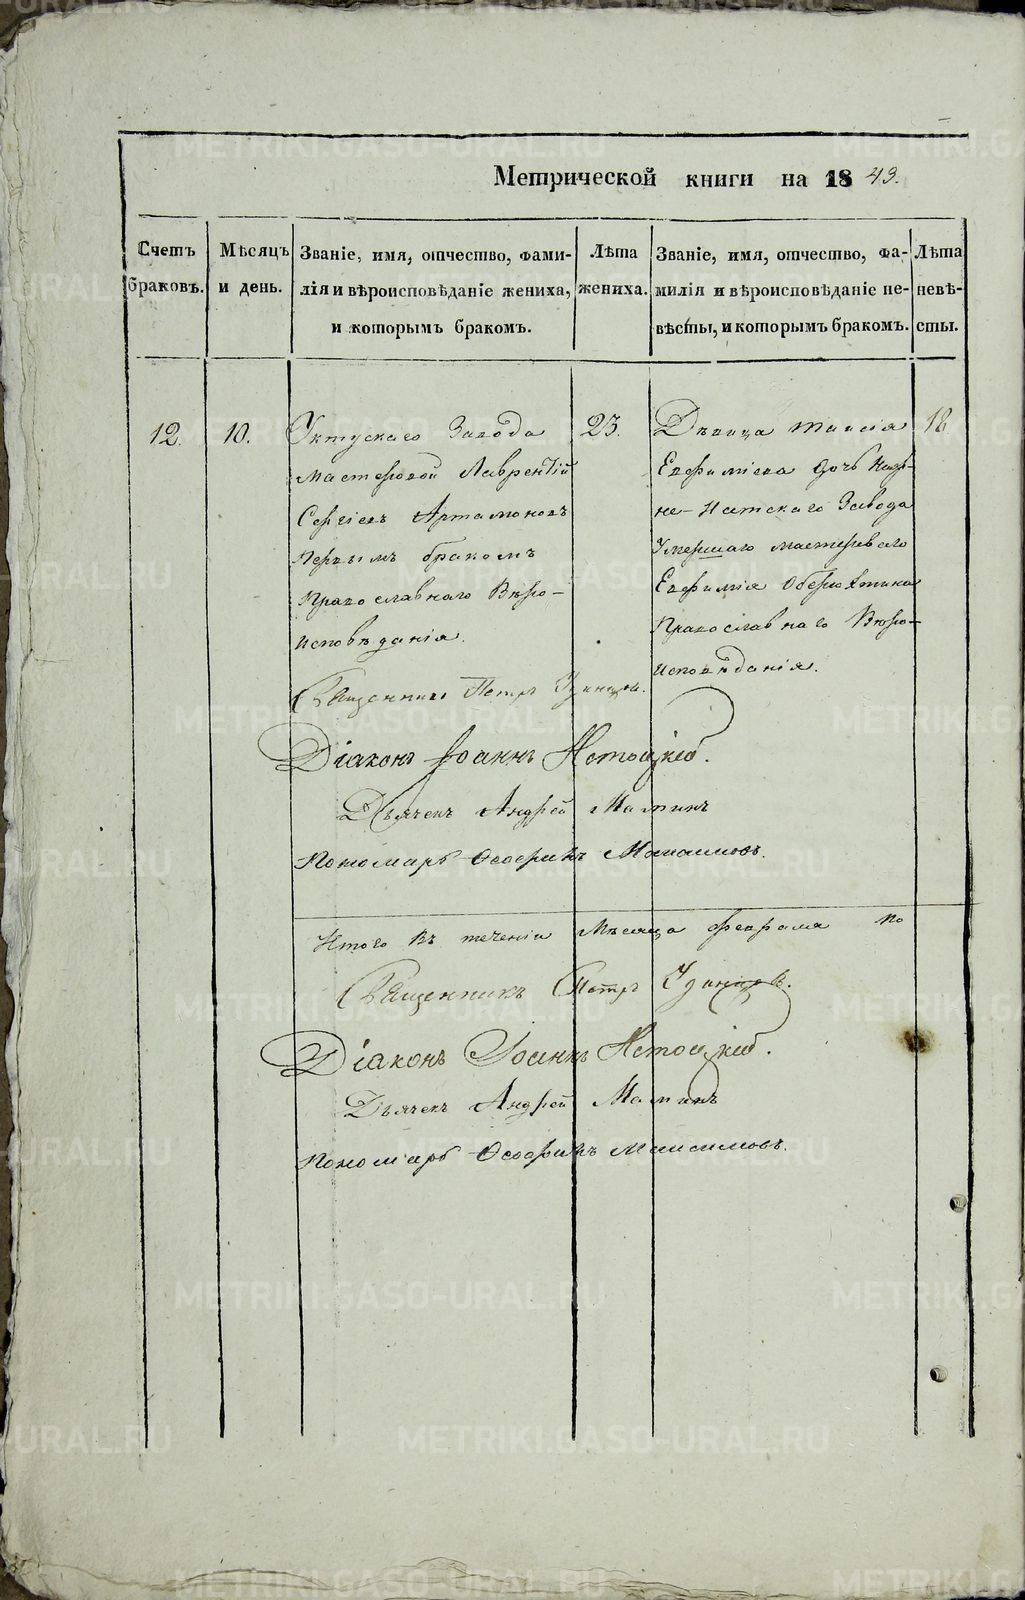 Метрической книги на 1843.
Счетъ браковъ.
Мѣсяцъ и день.
Званіе, имя, отчество, фами-
лія и вѣроисповѣданіе жениха,
и которымъ бракомъ.
Лѣта
жениха.
Званіе, имя, отчество, фа-
милія и вѣроисповѣданіе не-
вѣсты, и которымъ бракомъ.
Лѣта
невѣ-
сты.
12.
10.
Уктускаго Завода
мастеровой Лаврентій
Сергіевъ Артамоновъ
Первымъ бракомъ
Православнаго Вѣро-
исповѣданія.
23.
Дѣвица Таисія
Евфиміева дочь Ниж-
не-Исетскаго Завода
Умершаго мастероваго
Евфимія Оберюхтина
Православнаго Вѣро-
исповѣданія.
18
Священникъ Петръ
Діаконъ Іоаннъ
Дьячекъ Андрей
Пономарь Ѳеофилъ
Итого въ теченіи Мѣсяца февраля по
Священникъ Петръ
Діаконъ Іоаннъ
Дьячекъ Андрей
Пономарь Ѳеофилъ Максимовъ.
METRIKI.GASO-URAL.RU